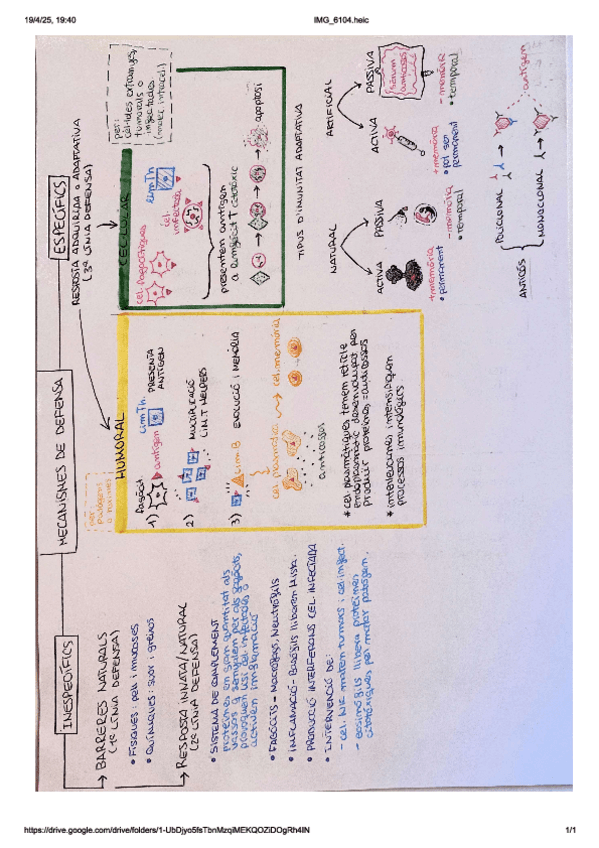 19/4/25, 19:40
IMG_6104.heic
MECANISMES DE DEFENSA
INESPECÍFICS
BARRERES NATURALS
(1ª LÍNIA DEFENSA)
• FÍSIQUES: pell i mucoses
• QUÍMIQUES: suor i greixos
RESPOSTA INNATA/NATURAL
(2ª LÍNIA DEFENSA)
• SISTEMA DE COMPLEMENT
proteïnes en gran quantitat als
vasos q senyalen per als fagòcits,
provoquen lisi cel. infectades o
activen inflamació
• FAGÒCITS - Macròfags, Neutròfils
• INFLAMACIÓ - Basòfils lliberen Hista.
• PRODUCCIÓ INTERFERONS CEL. INFECTADA
• INTERVENCIÓ DE:
- cel. NK maten tumors i cel infect.
- eosinòfils llibera proteïnes
citotòxiques per matar patògen.
ESPECÍFICS
RESPOSTA ADQUIRIDA o ADAPTATIVA
(3ª LÍNIA DEFENSA)
per:
patògens
o toxines
HUMORAL
fagòcit
1)
antigen
Lim Th.
PRESENTA
ANTÍGEN
2)
MULTIPLICACIÓ
LIM.T HELPERS
3)
Lim B
EVOLUCIÓ I MEMÒRIA
cel. plasmàtica
cel. memòria
anticossos
* cel. plasmàtiques tenen reticle
endoplasmàtic desenvolupat per
produir proteïnes = anticossos
* interleucines intensifiquen
processos immunològics
per:
cèl·lules estranyes,
tumorals o
infectades
(molec. intracel.)
CEL·LULAR
cel. fagocítiques
cel.
infectada
Lim Th
presenten antigen
a limfòcit T citotòxic
apoptosi
TIPUS D'IMUNITAT ADAPTATIVA
NATURAL
ACTIVA
+memòria
• permanent
PASSIVA
- memòria
• temporal
ARTIFICIAL
ACTIVA
+memòria
• pot ser
permanent
PASSIVA
sèrum
anticossos
- memòria
• temporal
ANTICÒS
POLICLONAL
MONOCLONAL
antigen
https://drive.google.com/drive/folders/1-UbDjyo5fsTbnMzqiMEKQOZiDOgRh4lN
1/1